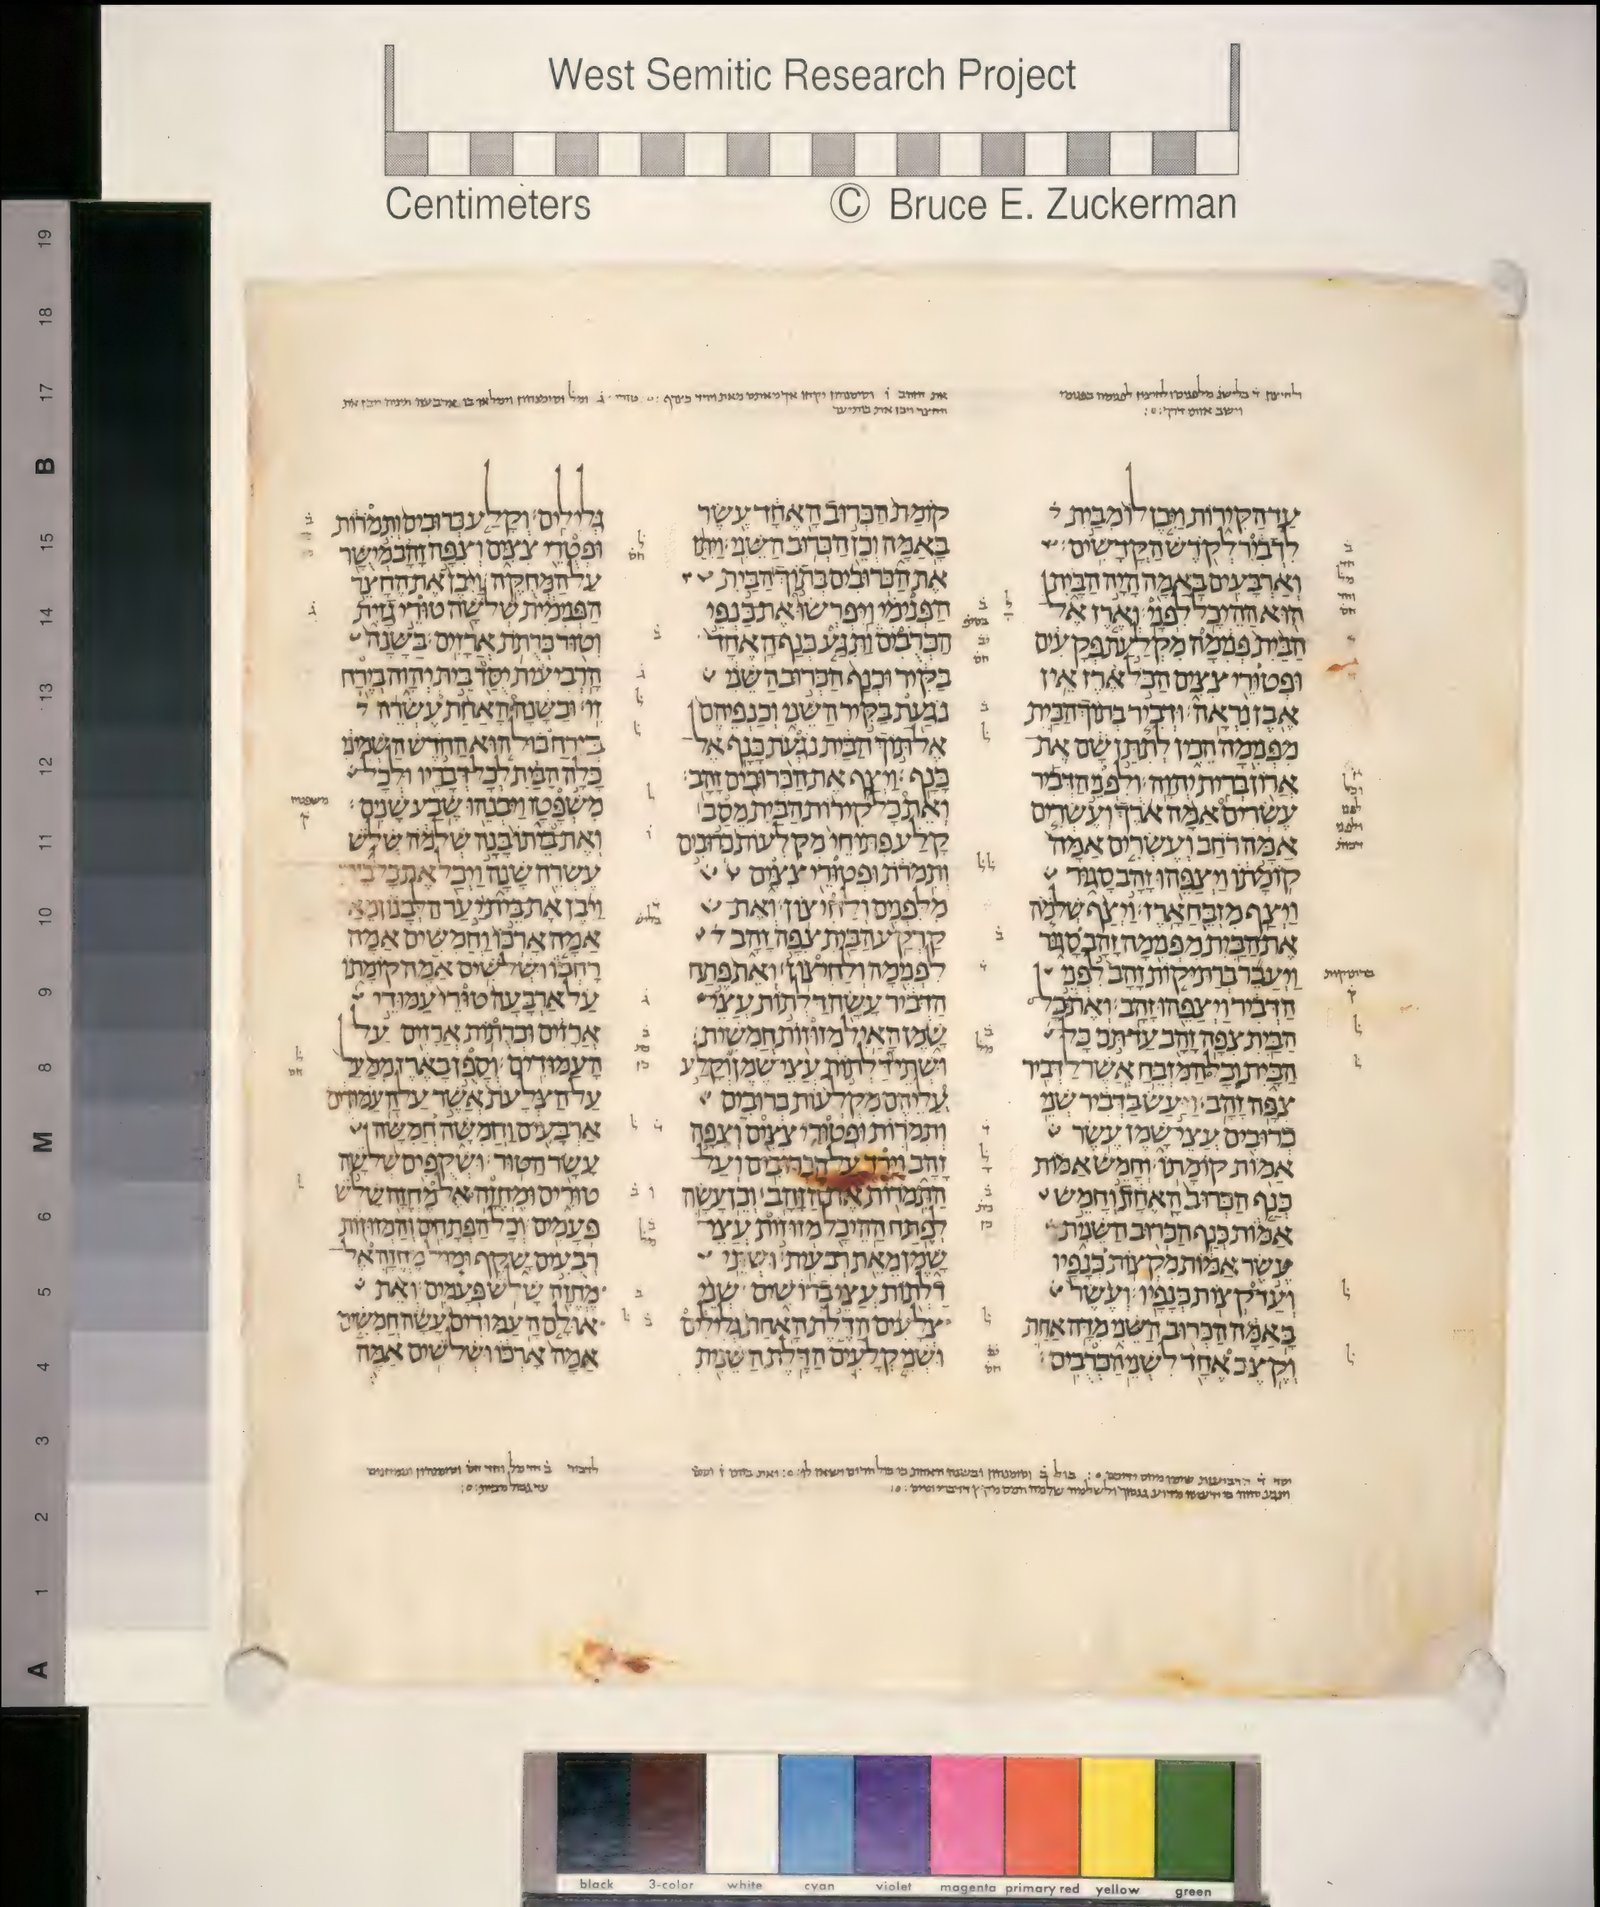 West Semitic Research Project
Centimeters © Bruce E. Zuckerman
עד הקירות ויבן לו מבית
לדביר לקדש הקדשים׃
וארבעים באמה היה הבית
הוא ההיכל לפני׃ וארז אל־
הבית פנימה מקלעת פקעים
ופטורי צצים הכל ארז אין
אבן נראה׃ ודביר בתוך הבית
מפנימה הכין לתתן שם את־
ארון ברית יהוה׃ ולפני הדביר
עשרים אמה ארך ועשרים
אמה רחב ועשרים אמה
קומתו ויצפהו זהב סגור
ויצף מזבח ארז׃ ויצף שלמה
את הבית מפנימה זהב סגור
ויעבר ברתיקות זהב לפני
הדביר ויצפהו זהב׃ ואת כל־
הבית צפה זהב עד תם כל־
הבית וכל המזבח אשר לדביר
צפה זהב׃ ויעש בדביר שני
כרובים עצי שמן עשר
אמות קומתו׃ וחמש אמות
כנף הכרוב האחת וחמש
אמות כנף הכרוב השנית
עשר אמות מקצות כנפיו
ועד קצות כנפיו׃ ועשר
באמה הכרוב השני מדה אחת
וקצב אחד לשני הכרבים׃
קומת הכרוב האחד עשר
באמה וכן הכרוב השני׃ ויתן
את הכרובים בתוך הבית
הפנימי ויפרשו את כנפי
הכרבים ותגע כנף האחד
בקיר וכנף הכרוב השני
נגעת בקיר השני וכנפיהם
אל תוך הבית נגעת כנף אל־
כנף׃ ויצף את הכרובים זהב׃
ואת כל קירות הבית מסב
קלע פתוחי מקלעות כרובים
ותמרת ופטורי צצים
מלפנים ולחיצון׃ ואת־
קרקע הבית צפה זהב
לפנימה ולחיצון׃ ואת פתח
הדביר עשה דלתות עצי־
שמן האיל מזוזות חמשית׃
ושתי דלתות עצי שמן וקלע
עליהם מקלעות כרובים
ותמרות ופטורי צצים וצפה
זהב וירד על הכרובים ועל־
התמרות את הזהב׃ וכן עשה
לפתח ההיכל מזוזות עצי־
שמן מאת רבעית׃ ושתי
דלתות עצי ברושים שני
צלעים הדלת האחת גלילים
ושני קלעים הדלת השנית
גלילים׃ וקלע כרובים ותמרות
ופטרי צצים וצפה זהב מישר
על המחקה׃ ויבן את החצר
הפנימית שלשה טורי גזית
וטור כרתת ארזים׃ בשנה
הרביעית יסד בית יהוה בירח
זו׃ ובשנה האחת עשרה
בירח בול הוא החדש השמיני
כלה הבית לכל דבריו ולכל־
משפטו ויבנהו שבע שנים׃
ואת ביתו בנה שלמה שלש
עשרה שנה ויכל את כל ביתו׃
ויבן את בית יער הלבנון מאה
אמה ארכו וחמשים אמה
רחבו ושלשים אמה קומתו
על ארבעה טורי עמודי
ארזים וכרתות ארזים על־
העמודים׃ וספן בארז ממעל
על הצלעת אשר על העמודים
ארבעים וחמשה חמשה
עשר הטור׃ ושקפים שלשה
טורים ומחזה אל מחזה שלש
פעמים׃ וכל הפתחים והמזוזות
רבעים שקף ומול מחזה אל־
מחזה שלש פעמים׃ ואת
אולם העמודים עשה חמשים
אמה ארכו ושלשים אמה
19
18
17
B
15
14
13
12
11
10
9
8
M
6
5
4
3
2
1
A
black 3-color white cyan violet magenta primary red yellow green